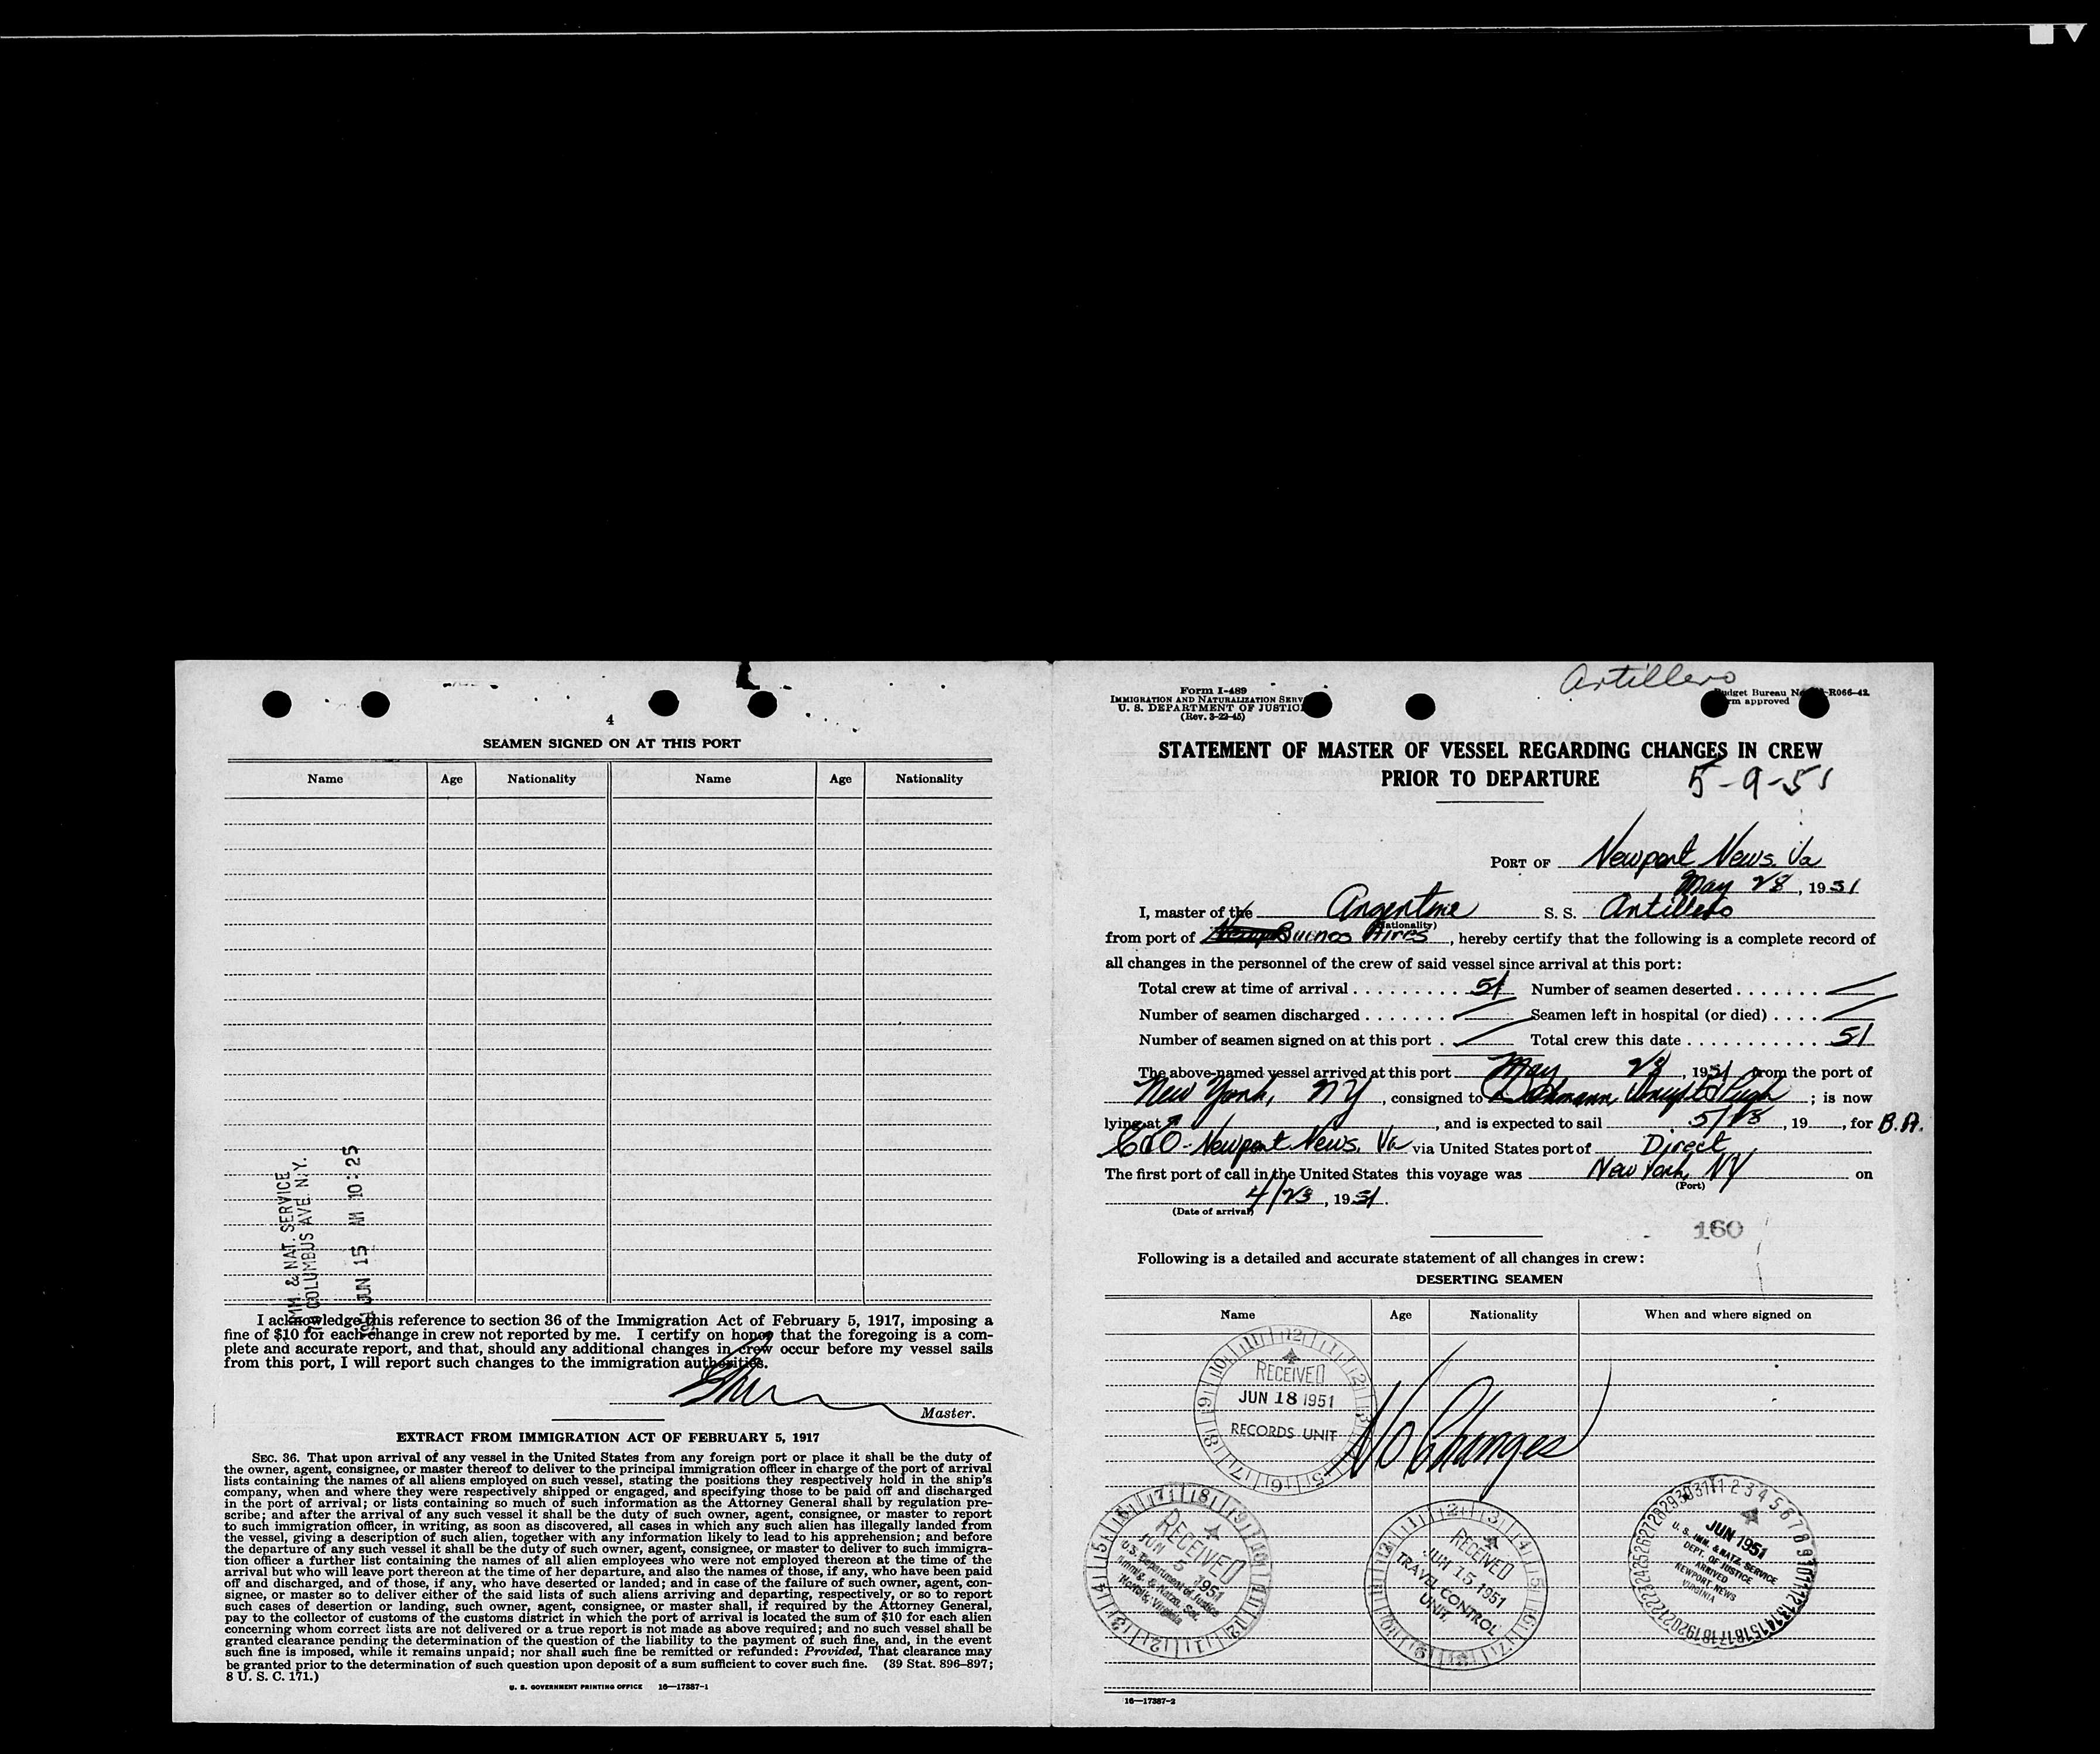 4
SEAMEN SIGNED ON AT THIS PORT
Name Age Nationality Name Age Nationality
IMM. & NAT. SERVICE
70 COLUMBUS AVE. N.Y.
1951 JUN 15 AM 10:25
I acknowledge this reference to section 36 of the Immigration Act of February 5, 1917, imposing a
fine of $10 for each change in crew not reported by me. I certify on honor that the foregoing is a com-
plete and accurate report, and that, should any additional changes in crew occur before my vessel sails
from this port, I will report such changes to the immigration authorities.
Master.
EXTRACT FROM IMMIGRATION ACT OF FEBRUARY 5, 1917
SEC. 36. That upon arrival of any vessel in the United States from any foreign port or place it shall be the duty of
the owner, agent, consignee, or master thereof to deliver to the principal immigration officer in charge of the port of arrival
lists containing the names of all aliens employed on such vessel, stating the positions they respectively hold in the ship's
company, when and where they were respectively shipped or engaged, and specifying those to be paid off and discharged
in the port of arrival; or lists containing so much of such information as the Attorney General shall by regulation pre-
scribe; and after the arrival of any such vessel it shall be the duty of such owner, agent, consignee, or master to report
to such immigration officer, in writing, as soon as discovered, all cases in which any such alien has illegally landed from
the vessel, giving a description of such alien, together with any information likely to lead to his apprehension; and before
the departure of any such vessel it shall be the duty of such owner, agent, consignee, or master to deliver to such immigra-
tion officer a further list containing the names of all alien employees who were not employed thereon at the time of the
arrival but who will leave port thereon at the time of her departure, and also the names of those, if any, who have been paid
off and discharged, and of those, if any, who have deserted or landed; and in case of the failure of such owner, agent, con-
signee, or master so to deliver either of the said lists of such aliens arriving and departing, respectively, or so to report
such cases of desertion or landing, such owner, agent, consignee, or master shall, if required by the Attorney General,
pay to the collector of customs of the customs district in which the port of arrival is located the sum of $10 for each alien
concerning whom correct lists are not delivered or a true report is not made as above required; and no such vessel shall be
granted clearance pending the determination of the question of the liability to the payment of such fine, and, in the event
such fine is imposed, while it remains unpaid; nor shall such fine be remitted or refunded: Provided, That clearance may
be granted prior to the determination of such question upon deposit of a sum sufficient to cover such fine. (39 Stat. 896–897;
8 U. S. C. 171.)
U. S. GOVERNMENT PRINTING OFFICE 16—17387-1
Artillero
Form I-489
IMMIGRATION AND NATURALIZATION SERV
U. S. DEPARTMENT OF JUSTIC
(Rev. 3-22-45)
Budget Bureau No. -R066-42.
rm approved
STATEMENT OF MASTER OF VESSEL REGARDING CHANGES IN CREW
PRIOR TO DEPARTURE
5-9-51
PORT OF Newport News, Va
May 28, 1951
I, master of the Argentine S. S. Artillero
(Nationality)
from port of Buenos Aires, hereby certify that the following is a complete record of
all changes in the personnel of the crew of said vessel since arrival at this port:
Total crew at time of arrival . . . . . . . . . . 51 Number of seamen deserted . . . . . . .
Number of seamen discharged . . . . . . . Seamen left in hospital (or died) . . . .
Number of seamen signed on at this port . Total crew this date . . . . . . . . . . . . 51
The above-named vessel arrived at this port May 28, 1951 from the port of
New York, NY, consigned to ; is now
lying at , and is expected to sail 5/28, 19 , for B.A.
C&O - Newport News, Va via United States port of Direct
The first port of call in the United States this voyage was New York, NY on
(Port)
4/23, 1951.
(Date of arrival)
160
Following is a detailed and accurate statement of all changes in crew:
DESERTING SEAMEN
Name Age Nationality When and where signed on
RECEIVED
JUN 18 1951
RECORDS UNIT
No Changes
RECEIVED
JUN 5 1951
U.S. Department of Justice
Immig. & Natzn. Ser.
Norfolk, Virginia
RECEIVED
JUN 15 1951
TRAVEL CONTROL
UNIT.
JUN 1951
U. S. IMM. & NATZ. SERVICE
DEPT. OF JUSTICE
ARRIVED
NEWPORT NEWS
VIRGINIA
16—17387-2